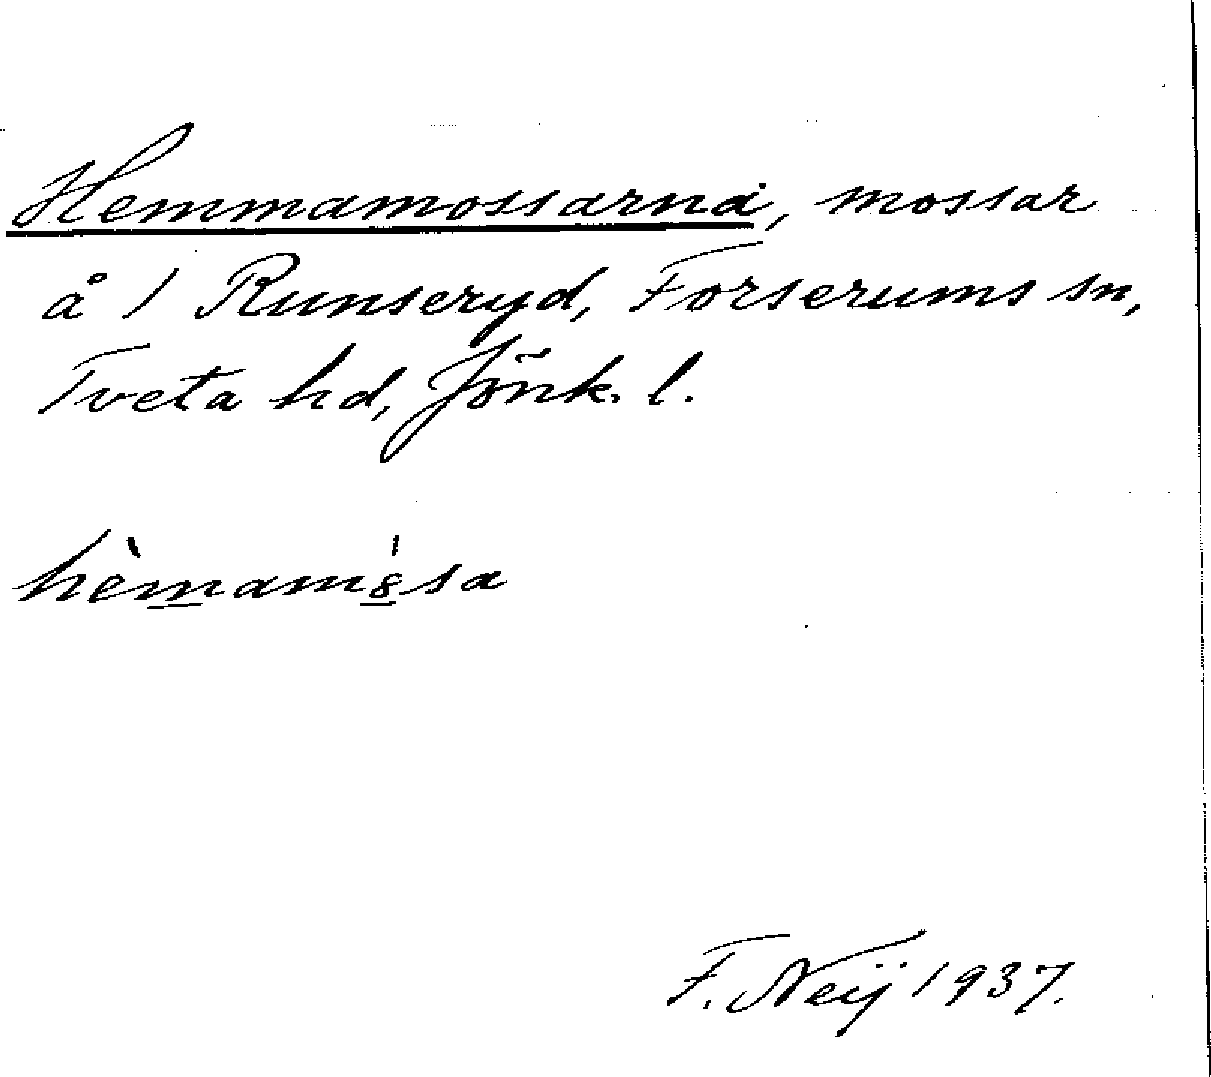 Hemmamossarna, mossar
å 1 Runseryd, Forserums sn,
Tveta hd, Jönk. l.
F. Neij 1937.